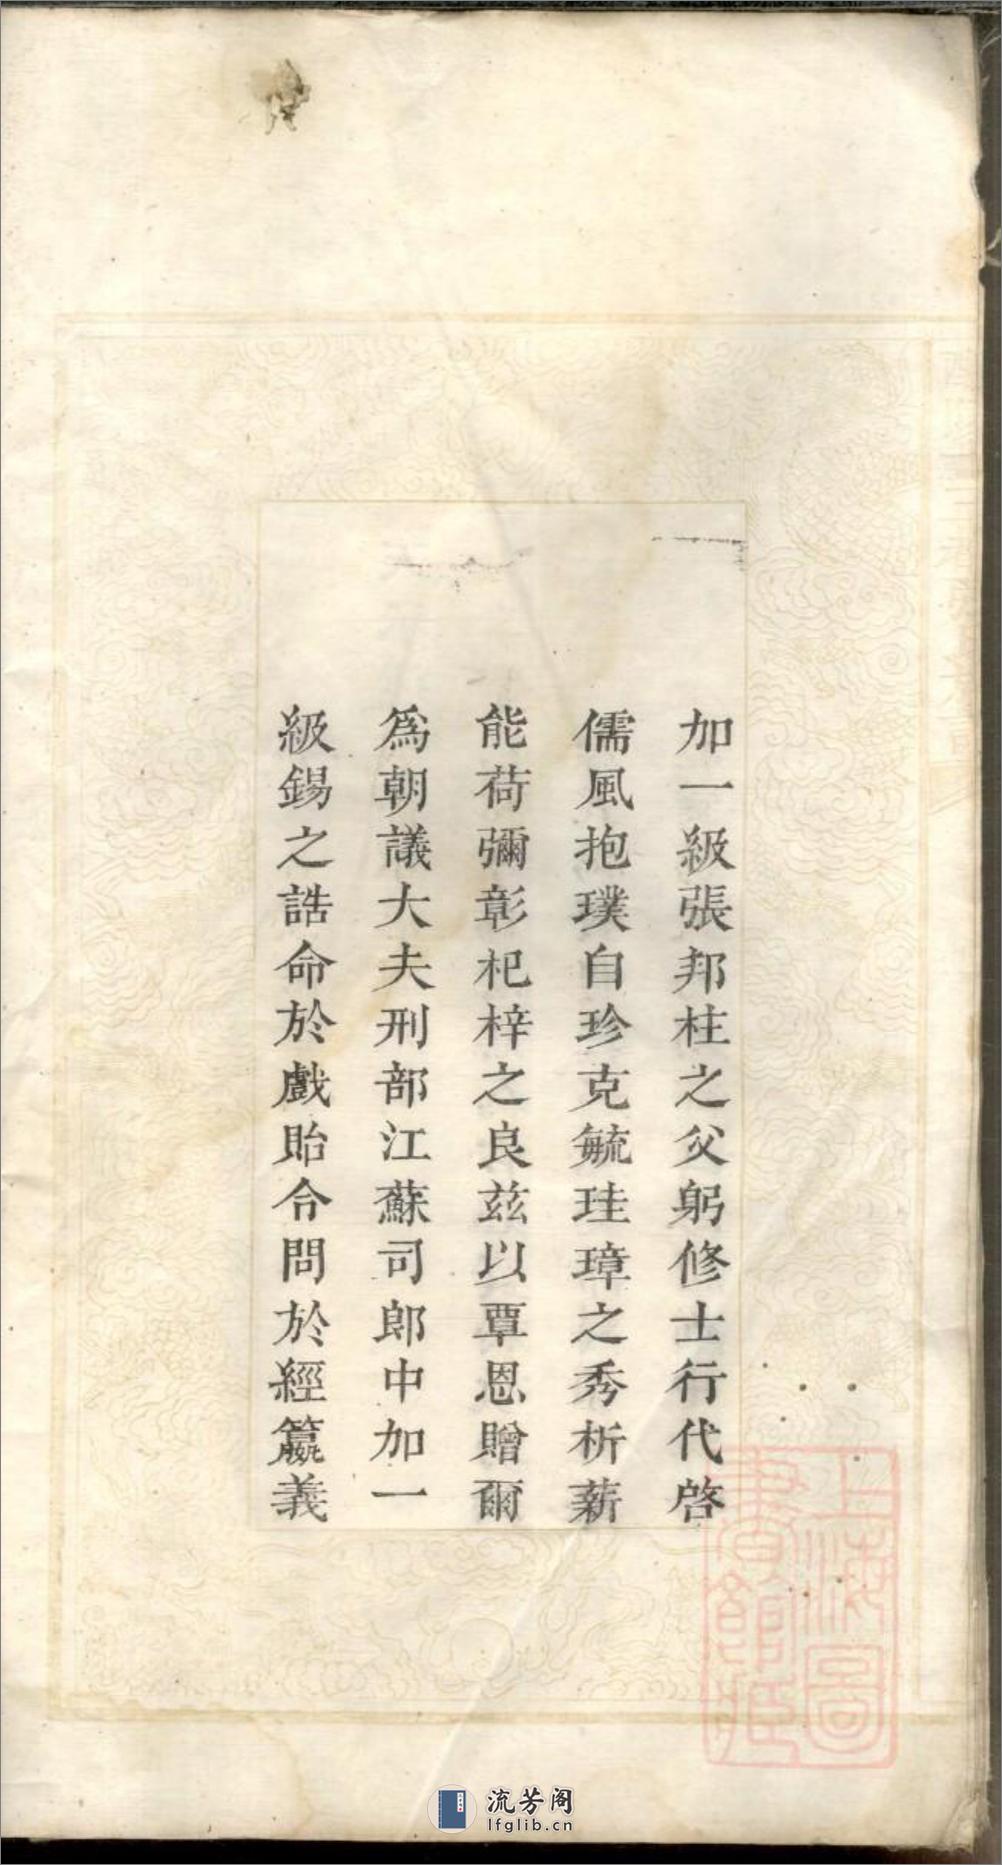 加一級張邦柱之父躬修士行代啓
儒風抱璞自珍克毓珪璋之秀析薪
能荷彌彰杞梓之良茲以覃恩贈爾
爲朝議大夫刑部江蘇司郎中加一
級錫之誥命於戲貽令問於經籯義
上海圖
書館藏
流芳阁
lfglib.cn